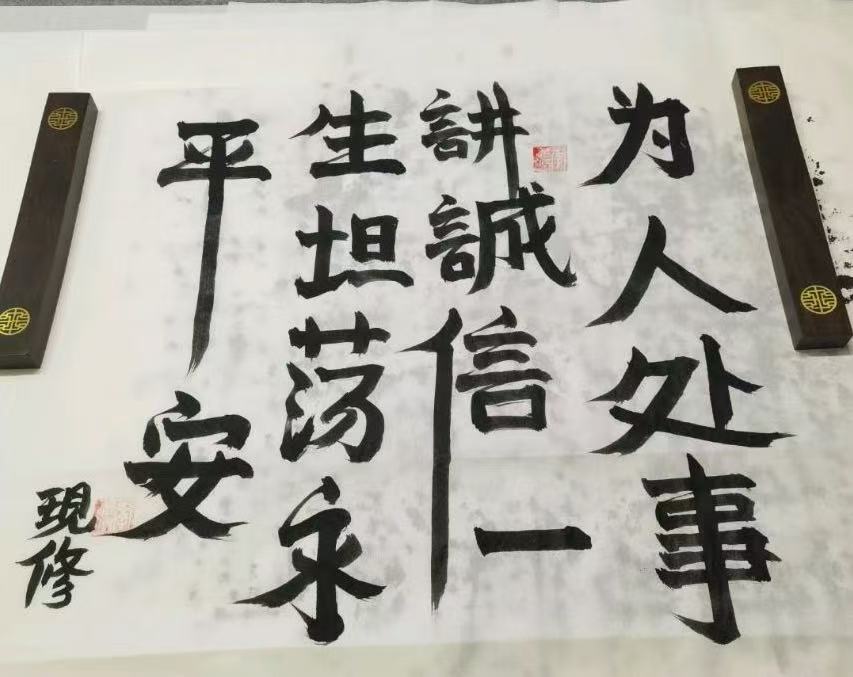 为人处事
講誠信一
生坦荡永
平安
現修